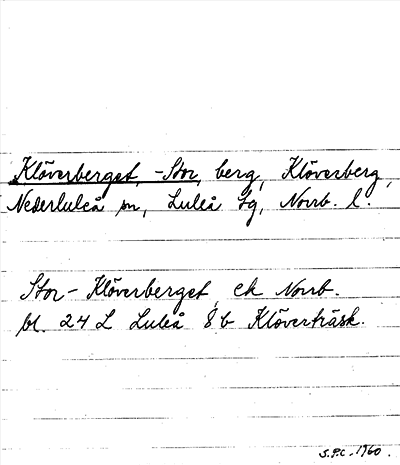 Klöverberget, -Stor, berg, Klöverberg,
Nederluleå sn, Luleå tg, Norrb. l.
Stor-Klöverberget, ek Norrb.
bl. 24 L Luleå 8b Klöverträsk.
S.P.C. 1960.